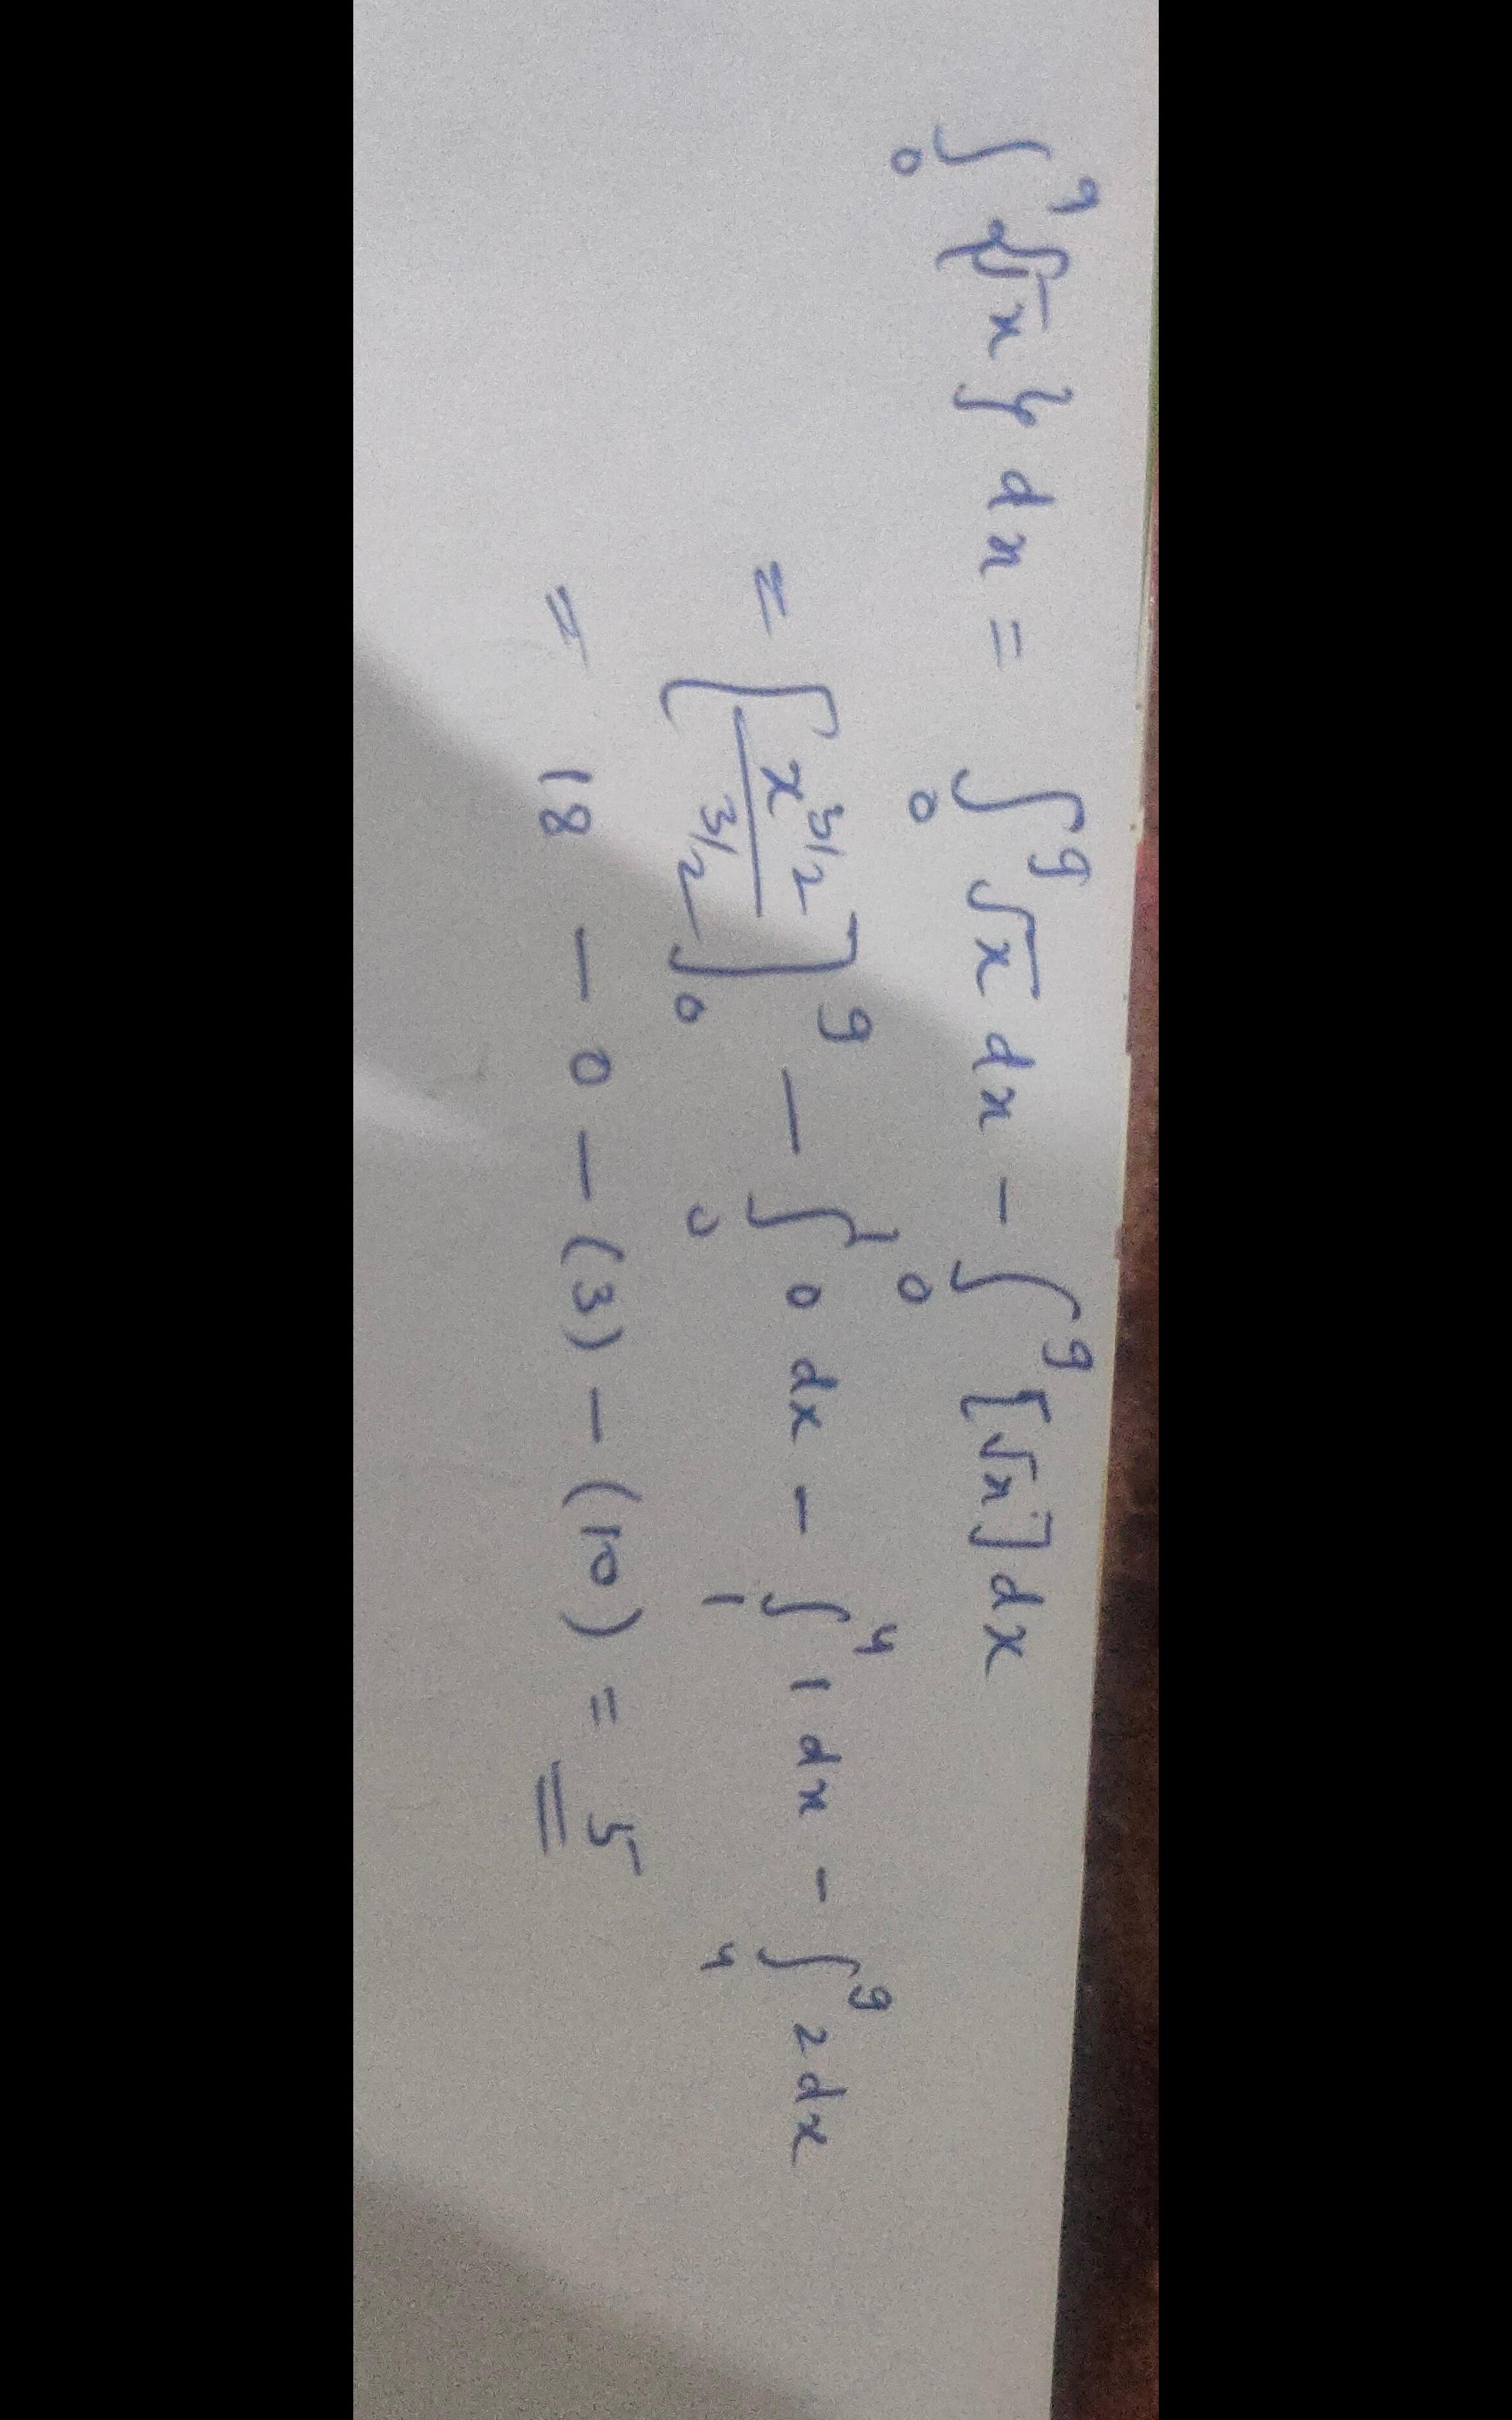 ∫₀⁹ {√x} dx = ∫₀⁹ √x dx - ∫₀⁹ [√x] dx
= [x^(3/2) / (3/2)]₀⁹ - ∫₀¹ 0 dx - ∫₁⁴ 1 dx - ∫₄⁹ 2 dx
= 18 - 0 - (3) - (10) = 5